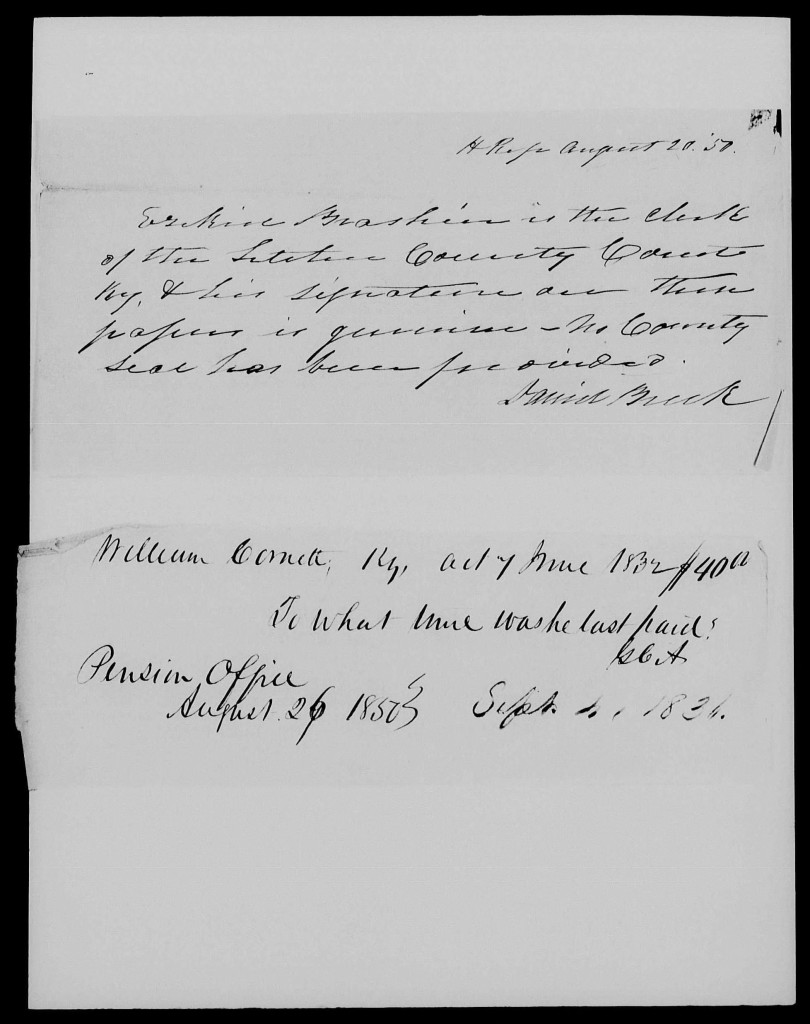 H Reps August 20. '50.
Eeskine Brashien is the Clerk
of the Letcher County Court
Ky. & his signature on these
papers is genuine - No County
seal has been provided.
David Breck
William Cornett, Ky, act 7 June 1832 $40.00
To what time was he last paid?
Pension Office
August 26 1850 } Sept. 4, 183